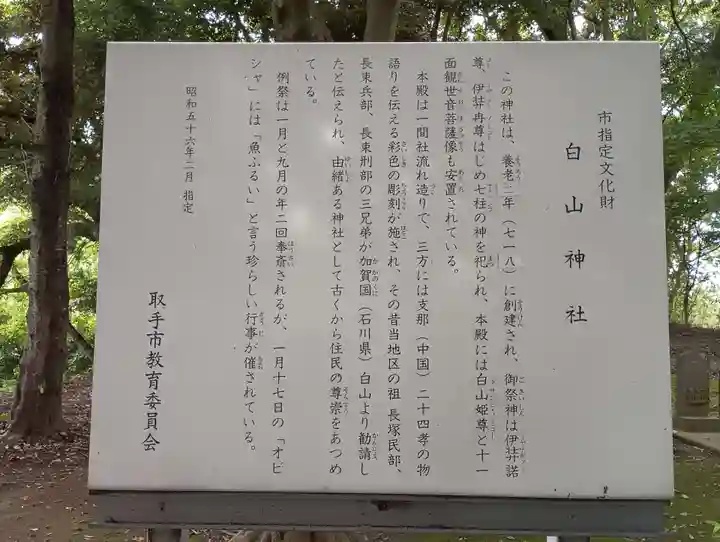 市指定文化財
白山神社
この神社は、養老二年（七一八）に創建され、御祭神は伊弉諾
尊、伊弉冉尊はじめ七柱の神を祀られ、本殿には白山姫尊と十一
面観世音菩薩像も安置されている。
本殿は一間社流れ造りで、三方には支那（中国）二十四孝の物
語りを伝える彩色の彫刻が施され、その昔当地区の祖 長塚民部、
長束兵部、長束刑部の三兄弟が加賀国（石川県）白山より勧請し
たと伝えられ、由緒ある神社として古くから住民の尊崇をあつめ
ている。
例祭は一月と九月の年二回奉斎されるが、一月十七日の「オビ
シャ」には「魚ふるい」と言う珍らしい行事が催されている。
昭和五十六年二月 指定
取手市教育委員会